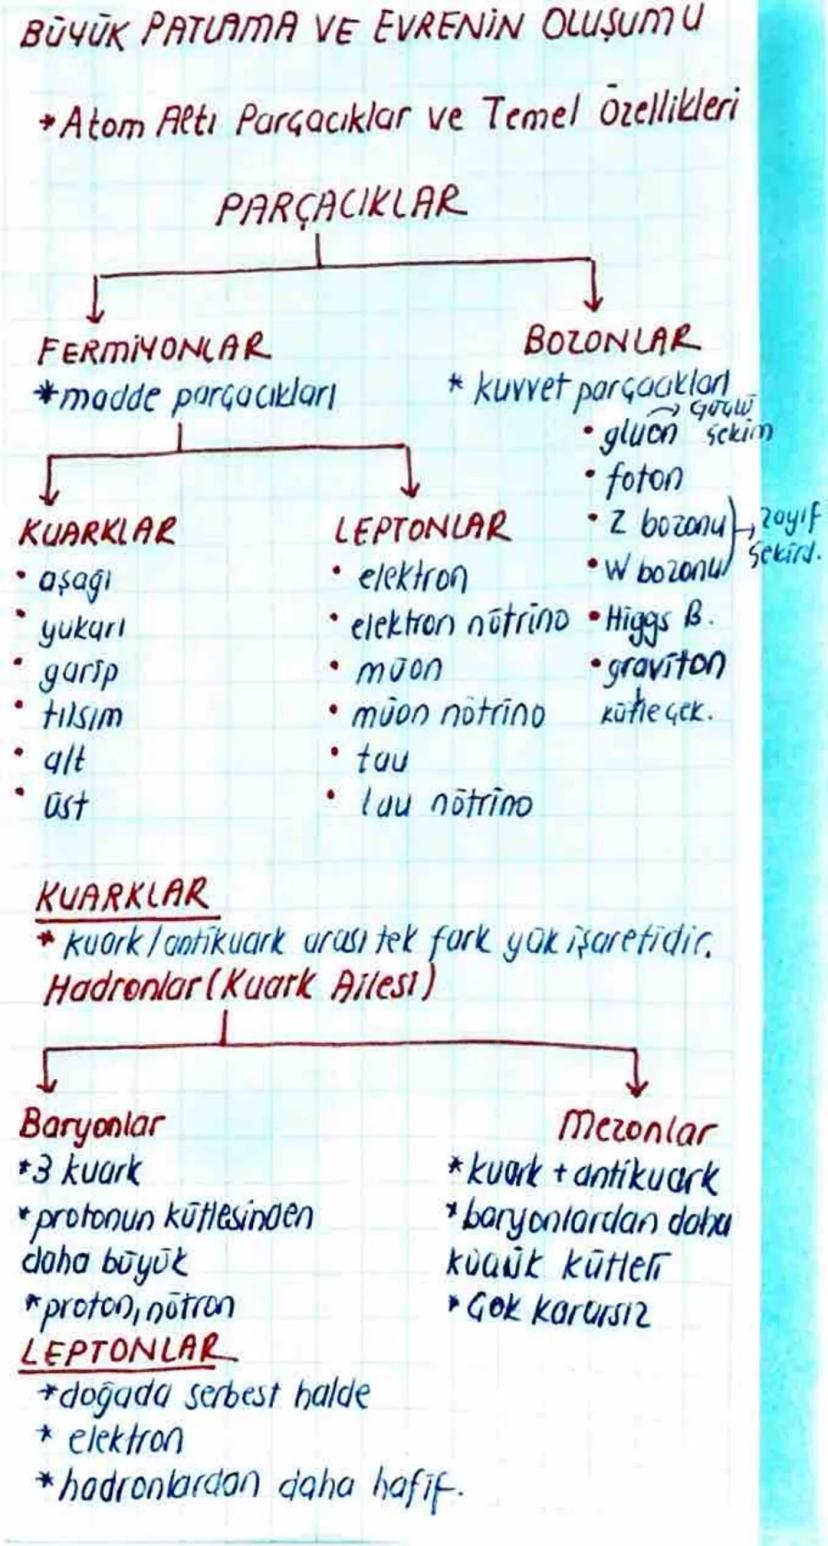 BÜYÜK PATLAMA VE EVRENİN OLUŞUMU
*Atom Altı Parçacıklar ve Temel Özellikleri
PARÇACIKLAR
FERMİYONLAR
*madde parçacıkları
BOZONLAR
* kuvvet parçacıkları
• gluon → Güçlü çekim
• foton
• Z bozonu
• W bozonu
→ zayıf
çekird.
• Higgs B.
• graviton
kütle çek.
KUARKLAR
• aşağı
• yukarı
• garip
• tılsım
• alt
• üst
LEPTONLAR
• elektron
• elektron nötrino
• müon
• müon nötrino
• tau
• tau nötrino
KUARKLAR
* kuark/antikuark arası tek fark yük işaretidir.
Hadronlar (Kuark Ailesi)
Baryonlar
*3 kuark
*protonun kütlesinden
daha büyük
*proton, nötron
Mezonlar
*kuark + antikuark
*baryonlardan daha
küçük kütleli
* Çok kararsız
LEPTONLAR
*doğada serbest halde
* elektron
*hadronlardan daha hafif.